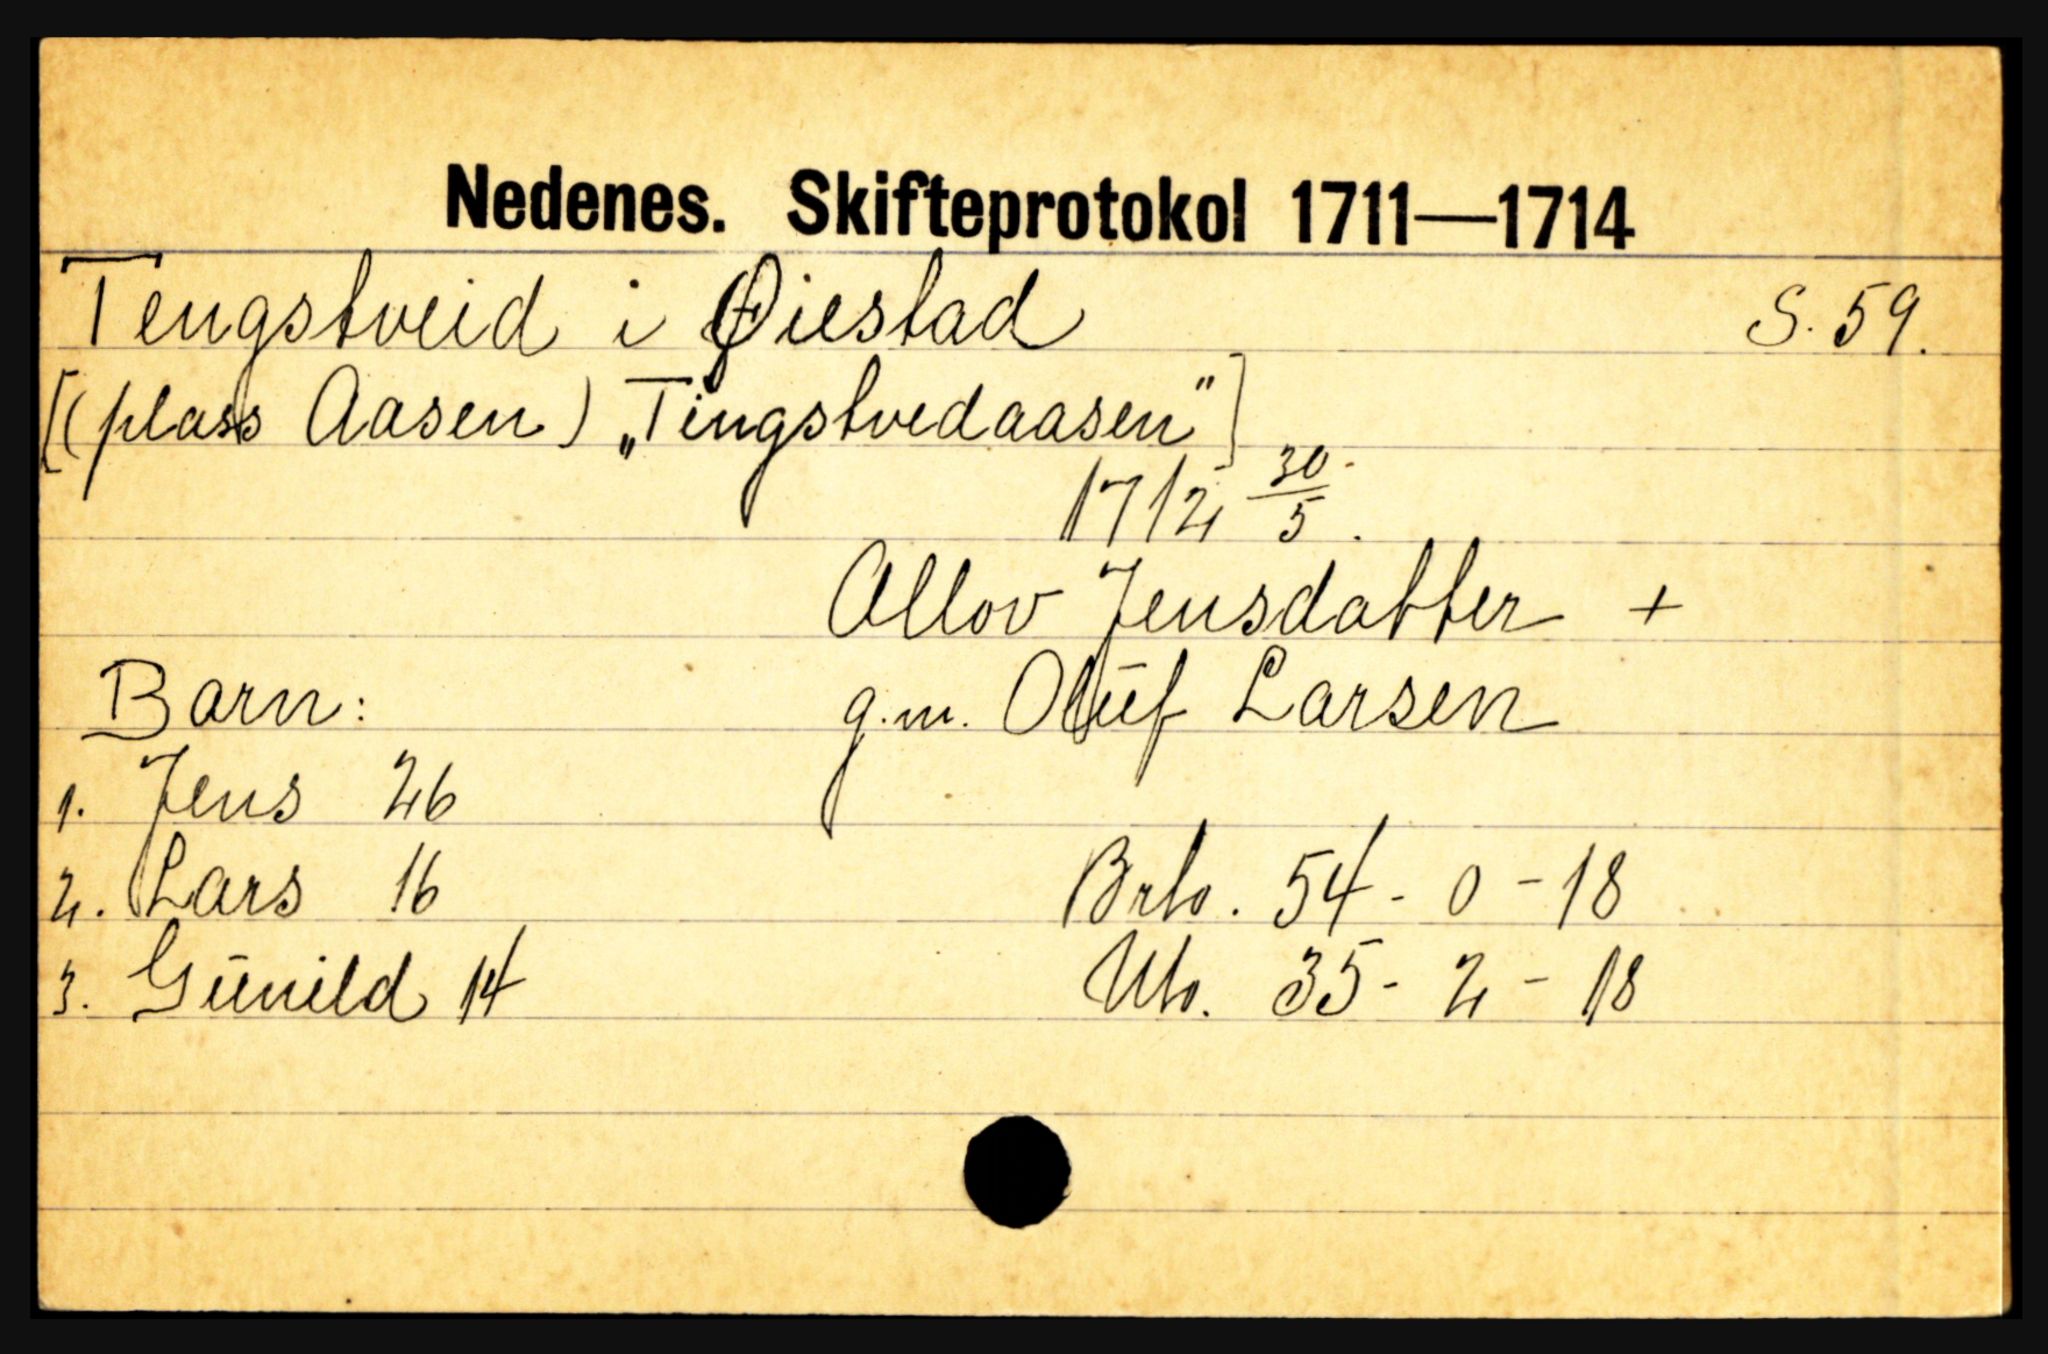 Nedenes. Skifteprotokol 1711—1714
Tengstveid i Øiestad S. 59.
[(plass Aasen) „Tingstvedaasen"]
1712 30/5.
Allov Jensdatter +
Barn: g.m. Oluf Larsen
1. Jens 26
2. Lars 16 Brto. 54 - 0 - 18
3. Gunild 14 Nto. 35 - 2 - 18